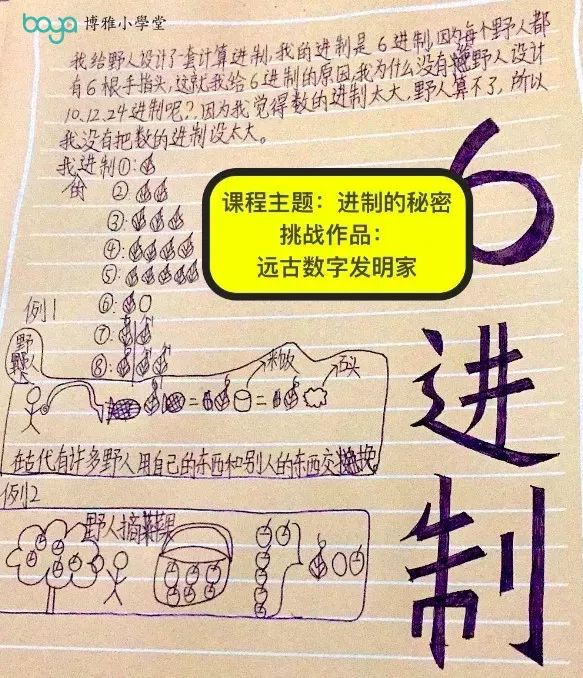 boya 博雅小學堂
我给野人设计了一套计算进制,我的进制是6进制,因为每个野人都
有6根手指头,这就我给6进制的原因,我为什么没有给野人设计
10.12.24进制呢?因为我觉得数的进制太大,野人算不了,所以
我没有把数的进制设太大。
我的进制①:
②:
③:
④:
⑤:
⑥:
⑦:
⑧:
课程主题：进制的秘密
挑战作品：
远古数字发明家
6
进
制
例1
野
人
米饭
石头
= = 
在古代有许多野人用自己的东西和别人的东西交换
例2
野人摘果